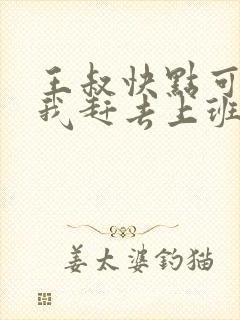 王叔快點可
我赶去上班
姜太婆钓猫